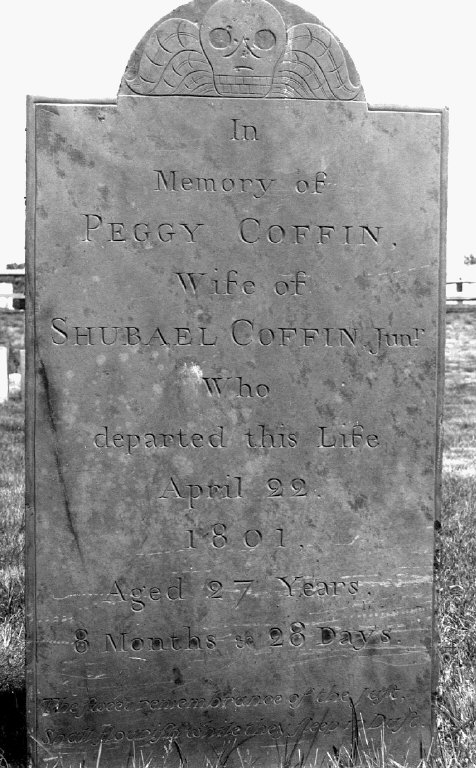 In
Memory of
PEGGY COFFIN,
Wife of
SHUBAEL COFFIN Junr
Who
departed this Life
April 22.
1801.
Aged 27 Years.
8 Months & 28 Days.
The sweet remembrance of the just.
Shall flourish while they sleep in Dust.